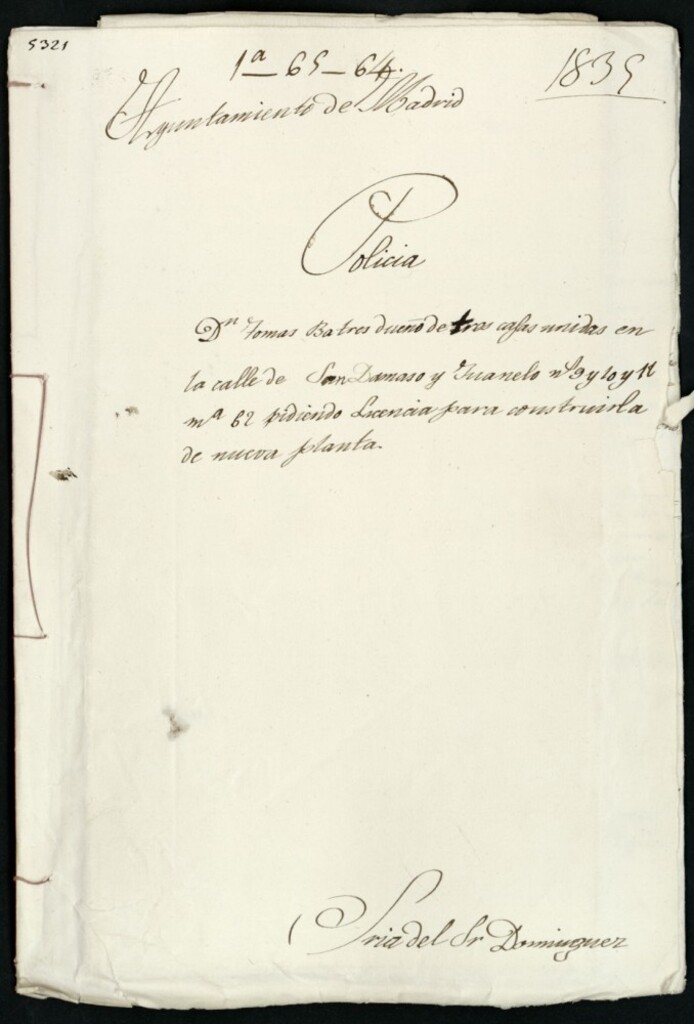 5321
1ª - 65 - 64.
1835
Ayuntamiento de Madrid
Policia
Dⁿ Tomas Batres dueño de tres casas unidas en
la calle de San Damaso y Juanelo nº 9 y 10 y 11
mª 62 pidiendo Licencia para construirla
de nueva planta.
Sria del Sr Dominguez